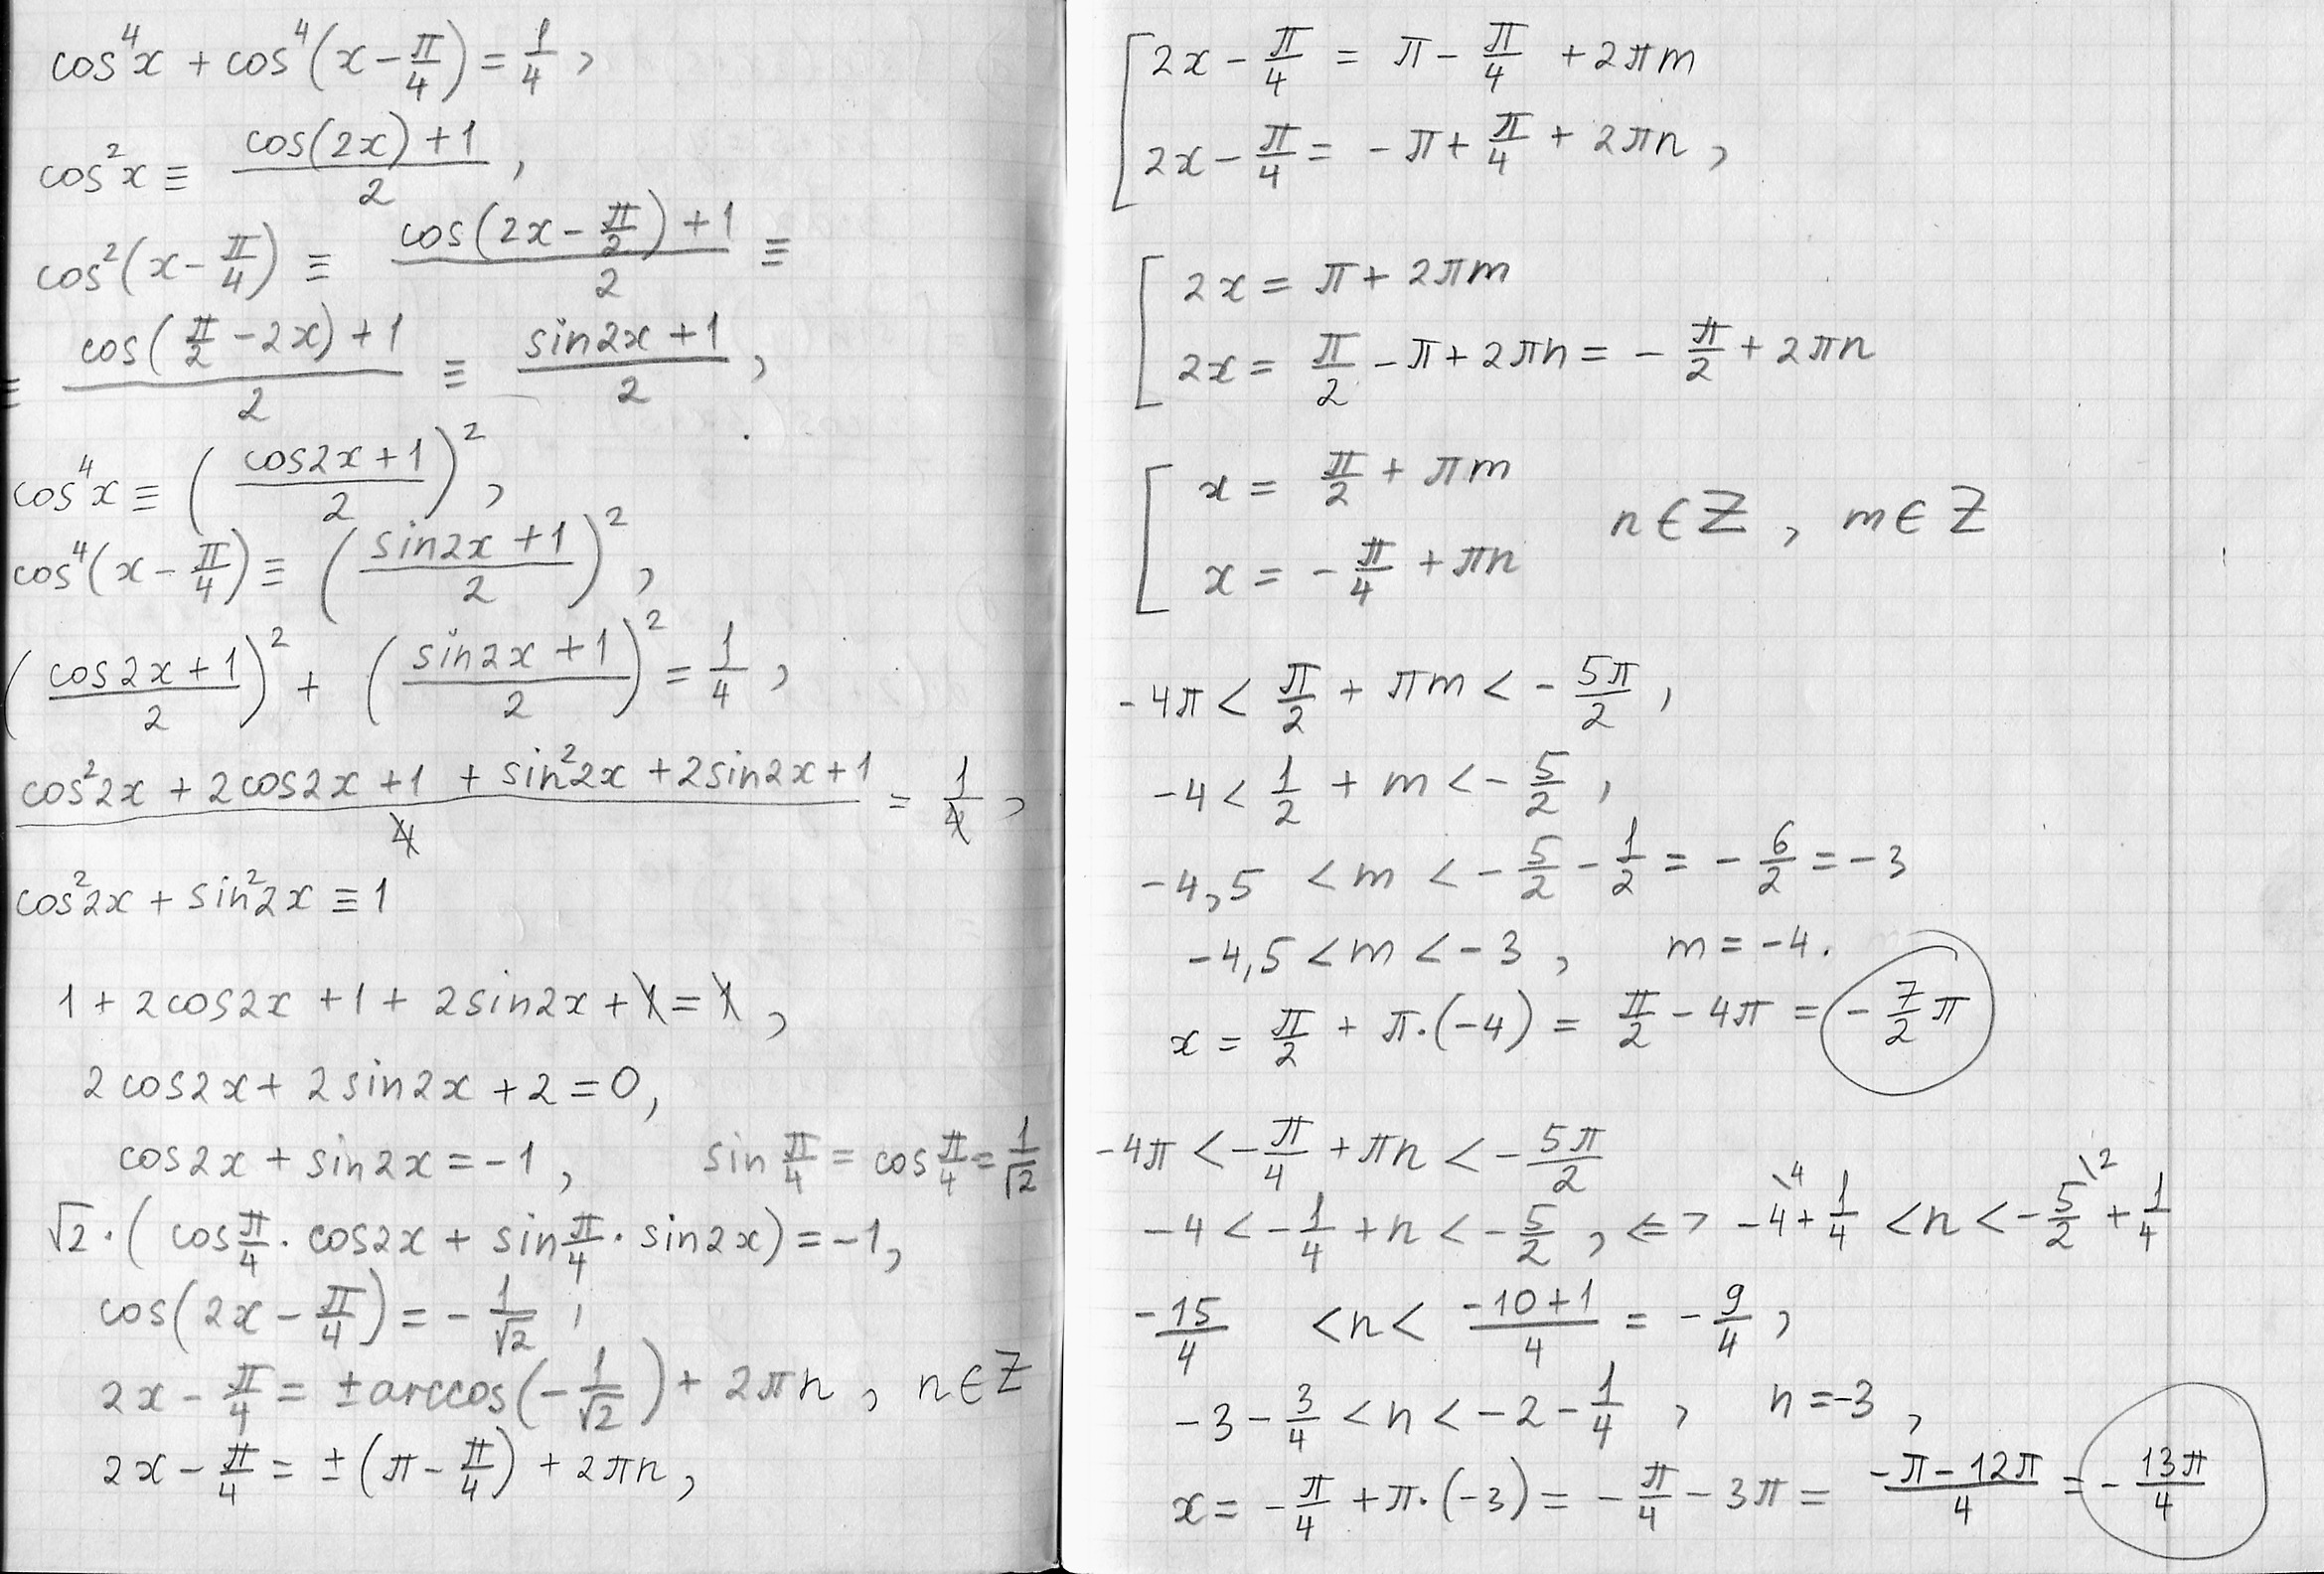 cos⁴x + cos⁴(x - π/4) = 1/4,
cos²x ≡ (cos(2x) + 1)/2,
cos²(x - π/4) ≡ (cos(2x - π/2) + 1)/2 ≡
≡ (cos(π/2 - 2x) + 1)/2 ≡ (sin2x + 1)/2,
cos⁴x ≡ ((cos2x + 1)/2)²,
cos⁴(x - π/4) ≡ ((sin2x + 1)/2)²,
((cos2x + 1)/2)² + ((sin2x + 1)/2)² = 1/4,
(cos²2x + 2cos2x + 1 + sin²2x + 2sin2x + 1)/4 = 1/4,
cos²2x + sin²2x ≡ 1
1 + 2cos2x + 1 + 2sin2x + 1 = 1,
2cos2x + 2sin2x + 2 = 0,
cos2x + sin2x = -1, sin π/4 = cos π/4 = 1/√2
√2·(cos π/4 · cos2x + sin π/4 · sin2x) = -1,
cos(2x - π/4) = - 1/√2,
2x - π/4 = ± arccos(- 1/√2) + 2πn, n∈Z
2x - π/4 = ±(π - π/4) + 2πn,
[ 2x - π/4 = π - π/4 + 2πm
2x - π/4 = -π + π/4 + 2πn,
[ 2x = π + 2πm
2x = π/2 - π + 2πn = - π/2 + 2πn
[ x = π/2 + πm
x = - π/4 + πn n∈Z, m∈Z
-4π < π/2 + πm < - 5π/2,
-4 < 1/2 + m < - 5/2,
-4,5 < m < - 5/2 - 1/2 = - 6/2 = -3
-4,5 < m < -3, m = -4.
x = π/2 + π·(-4) = π/2 - 4π = - 7/2 π
-4π < - π/4 + πn < - 5π/2
-4 < - 1/4 + n < - 5/2, <=> -4\⁴ + 1/4 < n < - 5/2\² + 1/4
- 15/4 < n < (-10+1)/4 = - 9/4,
-3 - 3/4 < n < -2 - 1/4, n = -3,
x = - π/4 + π·(-3) = - π/4 - 3π = (-π - 12π)/4 = - 13π/4